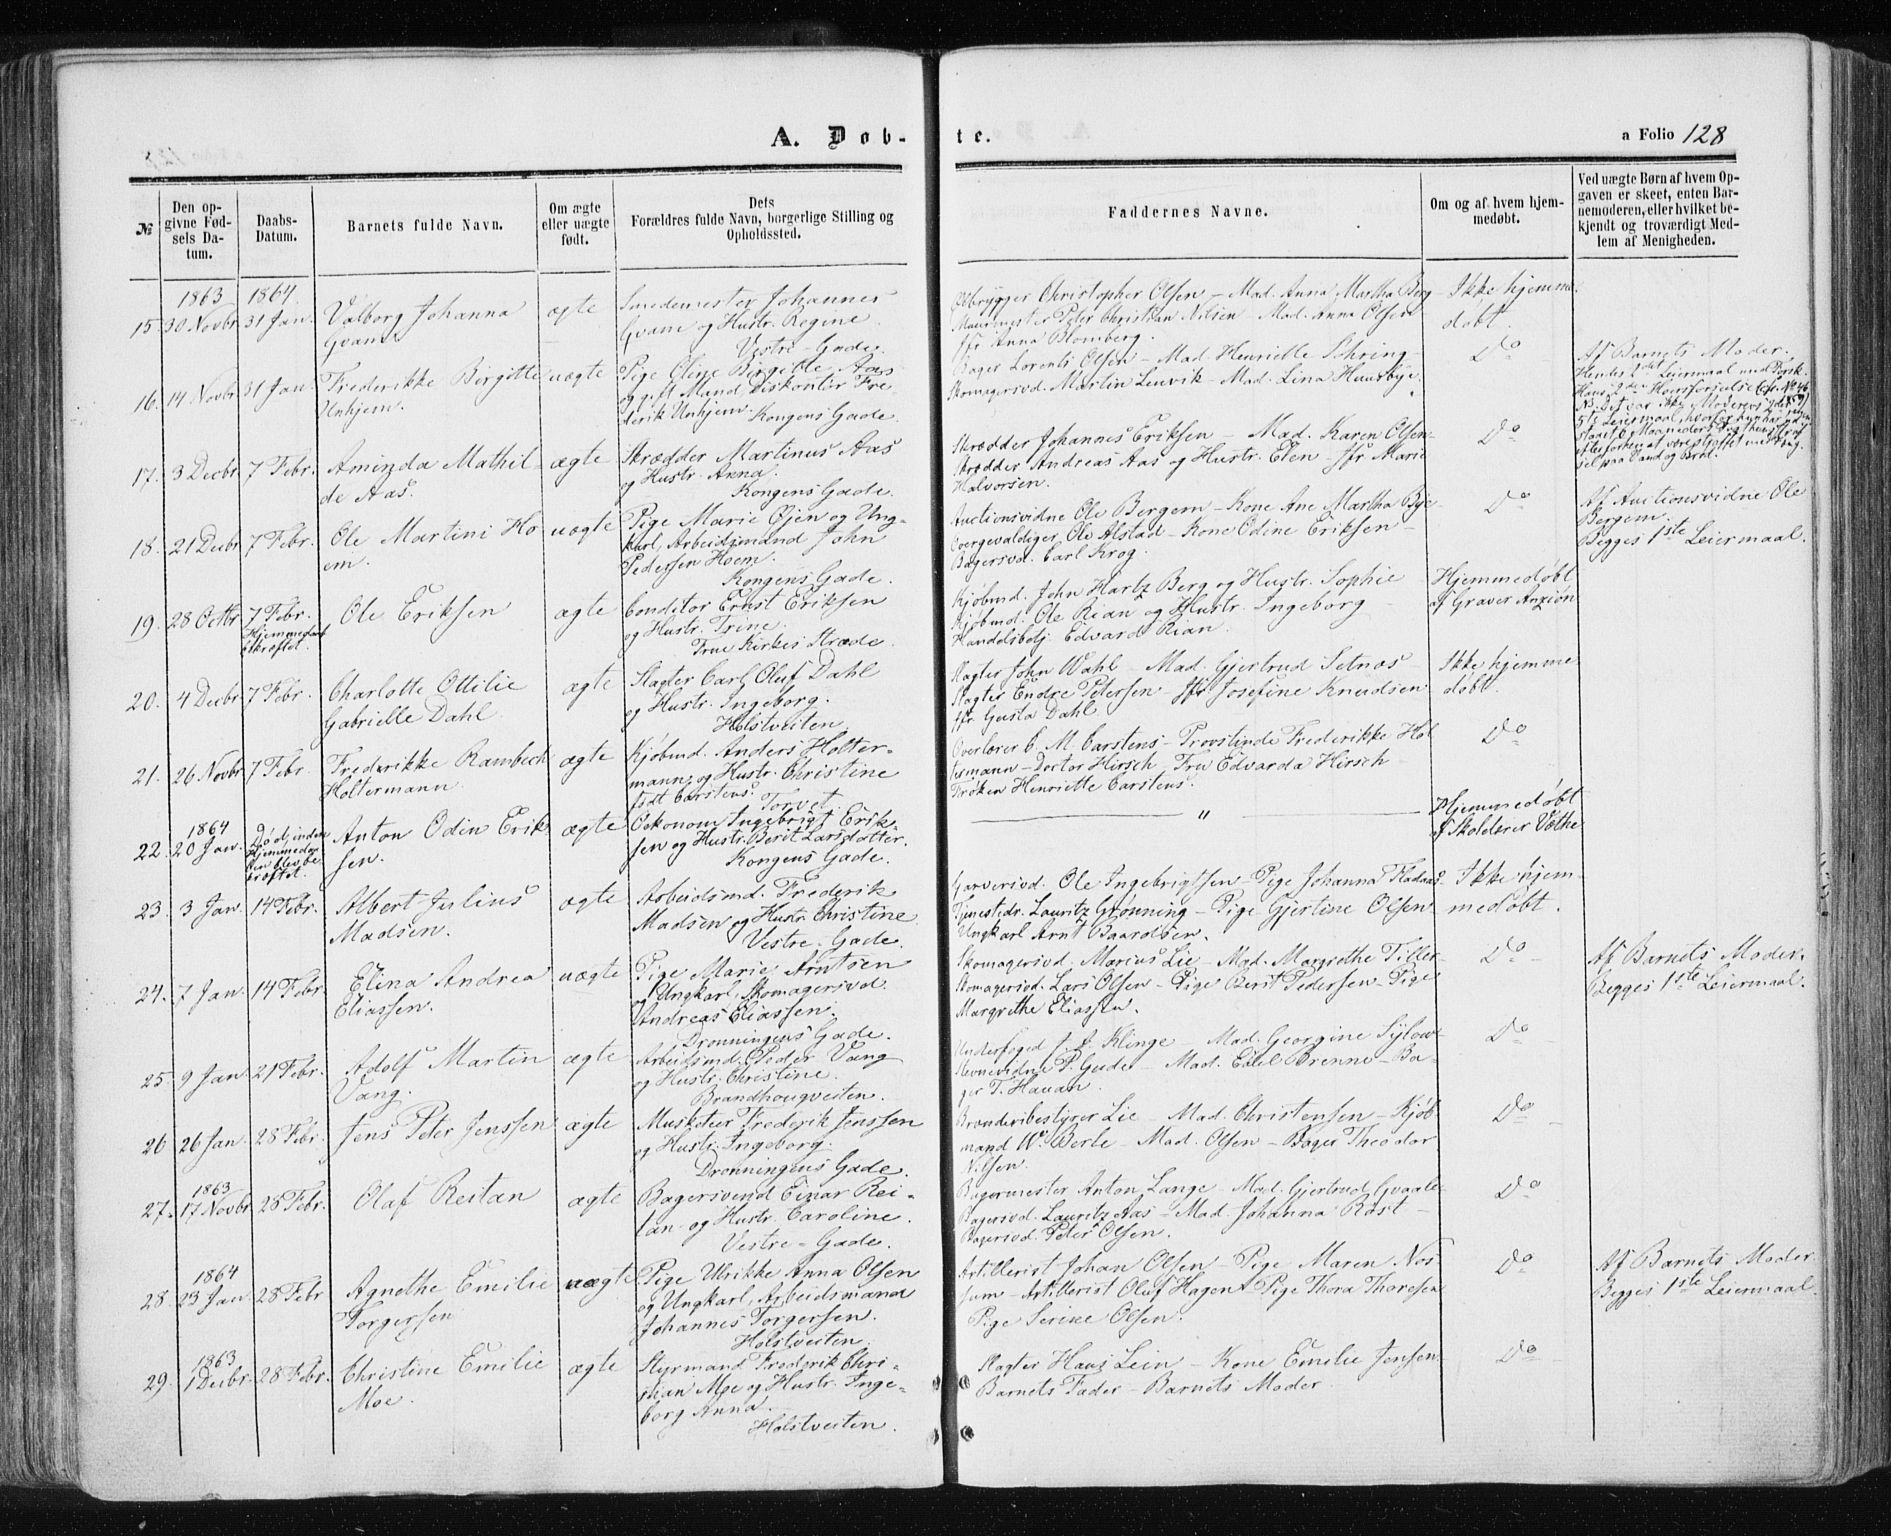 A. Døb-te.
a Folio 128
№
Den opgivne Fødsels Datum.
Daabs-Datum.
Barnets fulde Navn.
Om ægte eller uægte født.
Dets Forældres fulde Navn, borgerlige Stilling og Opholdssted.
Faddernes Navne.
Om og af hvem hjemmedøbt.
Ved uægte Børn af hvem Opgaven er skeet, enten Barnemoderen, eller hvilket bekjendt og troværdigt Medlem af Menigheden.
15. 1863 30 Novbr. 1864. 31 Jan. Valborg Johanna Gvam ægte
Smedemester Johannes
Gvam og Hustr. Regine.
Vestre-Gade.
Ølbrygger Christopher Olsen - Mad. Anna Martha Berg
Muurmester Peter Christian Nilsen - Mad. Anna Olsen
Jfr Anna Blomberg.
Ikke hjemmedøbt.
16. 14 Novbr. 31 Jan. Frederikke Birgitte Unhjem. uægte
Pige Oline Birgitte Aas
og gift Mand Diskontør Fre
derik Unhjem. Kongens Gade.
Bager Lorents Olsen - Mad. Henriette Söhring
Skomagersvd. Martin Leuvik - Mad. Lina Huusbye.
Do
Af Barnets Moder.
Hendes 2det Leiermaal
17. 3 Decbr. 7 Febr. Aminda Mathilde Aas. ægte
Skrædder Martinus Aas
og Hustr. Anna.
Kongens Gade.
Skrædder Johannes Eriksen - Mad. Karen Olsen
Skrædder Andreas Aas og Hustr. Elen - Jfr Marie
Halvorsen.
Do
18. 21 Decbr. 7 Febr. Ole Martini Hoem. uægte
Pige Marie Øien og Ung-
karl, Arbeidsmand John
Pedersen Hoem.
Kongens Gade.
Auctionsvidne Ole Bergem - Kone Ane Martha Bye
Overgevaldiger Ole Alstad - Kone Odine Eriksen -
Bagersvd. Carl Krog.
Do
Af Auctionsvidne Ole
Bergem.
Begges 1ste Leiermaal.
19. 28 Octbr. 7 Febr. Hjemmedaab bekræftet. Ole Eriksen ægte
Conditor Ernst Eriksen
og Hustr. Trine.
Frue Kirkes Stræde.
Kjøbmd. John Hartz Berg og Hustr. Sophie
Kjøbmd. Ole Rian og Hustr. Ingeborg -
Handelsbetj. Edvard Rian.
Hjemmedøbt
af Graver Anzion
20. 4 Decbr. 7 Febr. Charlotte Ottilie Gabrielle Dahl. ægte
Slagter Carl Oluf Dahl
og Hustr. Ingeborg.
Holstveiten
Slagter John Wahl - Mad. Gjertrud Setnæs -
Slagter Endre Petersen - Jfr Josefine Knudsen
Jfr. Gusta Dahl
Ikke hjemme
døbt.
21. 26 Novbr. 7 Febr. Frederikke Rambech Holtermann. ægte
Kjøbmd. Anders Holter-
mann og Hustr. Christine
født Carstens. Torvet.
Overlærer C. M. Carstens - Provstinde Frederikke Hol
termann - Doctor Hirsch - Fru Edvarda Hirsch -
Frøken Henriette Carstens.
Do
22. 1864 20 Jan. Anton Odin Eriksen. ægte
Oekonom Ingebrigt Erik-
sen og Hustr. Berit Larsdatter.
Kongens Gade.
"
Hjemmedøbt
af Skolelærer Vethe
23. 3 Jan. 14 Febr. Albert Julius Madsen. ægte
Arbeidsmd. Frederik
Madsen og Hustr. Christine
Vestre-Gade.
Garversvd. Ole Ingebrigtsen - Pige Johanna Fladaas
Tjenestedr. Lauritz Grønning - Pige Gjertine Olsen
Ungkarl Arnt Baardsen.
Ikke hjem-
medøbt.
24. 7 Jan. 14 Febr. Elina Andrea Eliassen. uægte
Pige Marie Arntsen
og Ungkarl, Skomagersvd
Andreas Eliassen.
Dronningens Gade.
Skomagersvd. Marius Lie - Mad. Margrethe Tiller-
Skomagersvd. Lars Olsen - Pige Berit Pedersen - Pige
Margrethe Eliassen.
Do
Af Barnets Moder.
Begges 1ste Leiermaal.
25. 9 Jan. 21 Febr. Adolf Martin Vang. ægte
Arbeidsmd. Peder Vang
og Hustr. Christine.
Brandhougveiten.
Underfoged J. J. Klinge - Mad. Georgine Sylow-
Stevnevidne P. Gude - Mad. Edel Brenne - Ba-
ger T. Hauan.
Do
26 26 Jan. 28 Febr. Jens Peter Jenssen ægte
Musketeer Frederik Jenssen
og Hustr. Ingeborg.
Dronningens Gade.
Brænderibestyrer Lie - Mad. Christensen - Kjøb
mand Wm Berle - Mad. Olsen - Bager Theodor
Nilsen.
Do
27. 1863 17 Novbr. 28 Febr. Olaf Reitan ægte
Bagersvend Einar Rei-
tan og Hustr. Caroline.
Vestre-Gade.
Bagermester Anton Lange - Mad. Gjertrud Gvaale-
Bagersvd. Lauritz Aas - Mad. Johanna Rost -
Bagersvd. Peter Olsen.
Do
28. 1864 23 Jan. 28 Febr Agnethe Emilie Torgersen uægte
Pige Ulrikke Anna Olsen
og Ungkarl, Arbeidsmand
Johannes Torgersen.
Holstveiten.
Artillerist Johan Olsen - Pige Maren Nos
sum - Artillerist Oluf Hagen - Pige Thora Thoresen
Pige Serine Olsen.
Do
Af Barnets Moder
Begges 1ste Leiermaal.
29. 1863 1 Decbr. 28 Febr. Christine Emilie Moe. ægte
Styrmand Frederik Chri-
stian Moe og Hustr. Inge-
borg Anna.
Holstveiten.
Slagter Hans Lein - Kone Emilie Jensen
Barnets Fader - Barnets Moder.
Do